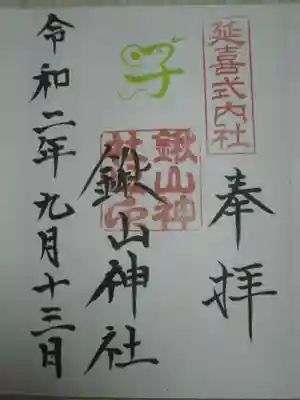 延喜式内社
奉拝
子
鍬山神
鍬山神社
令和二年九月十三日